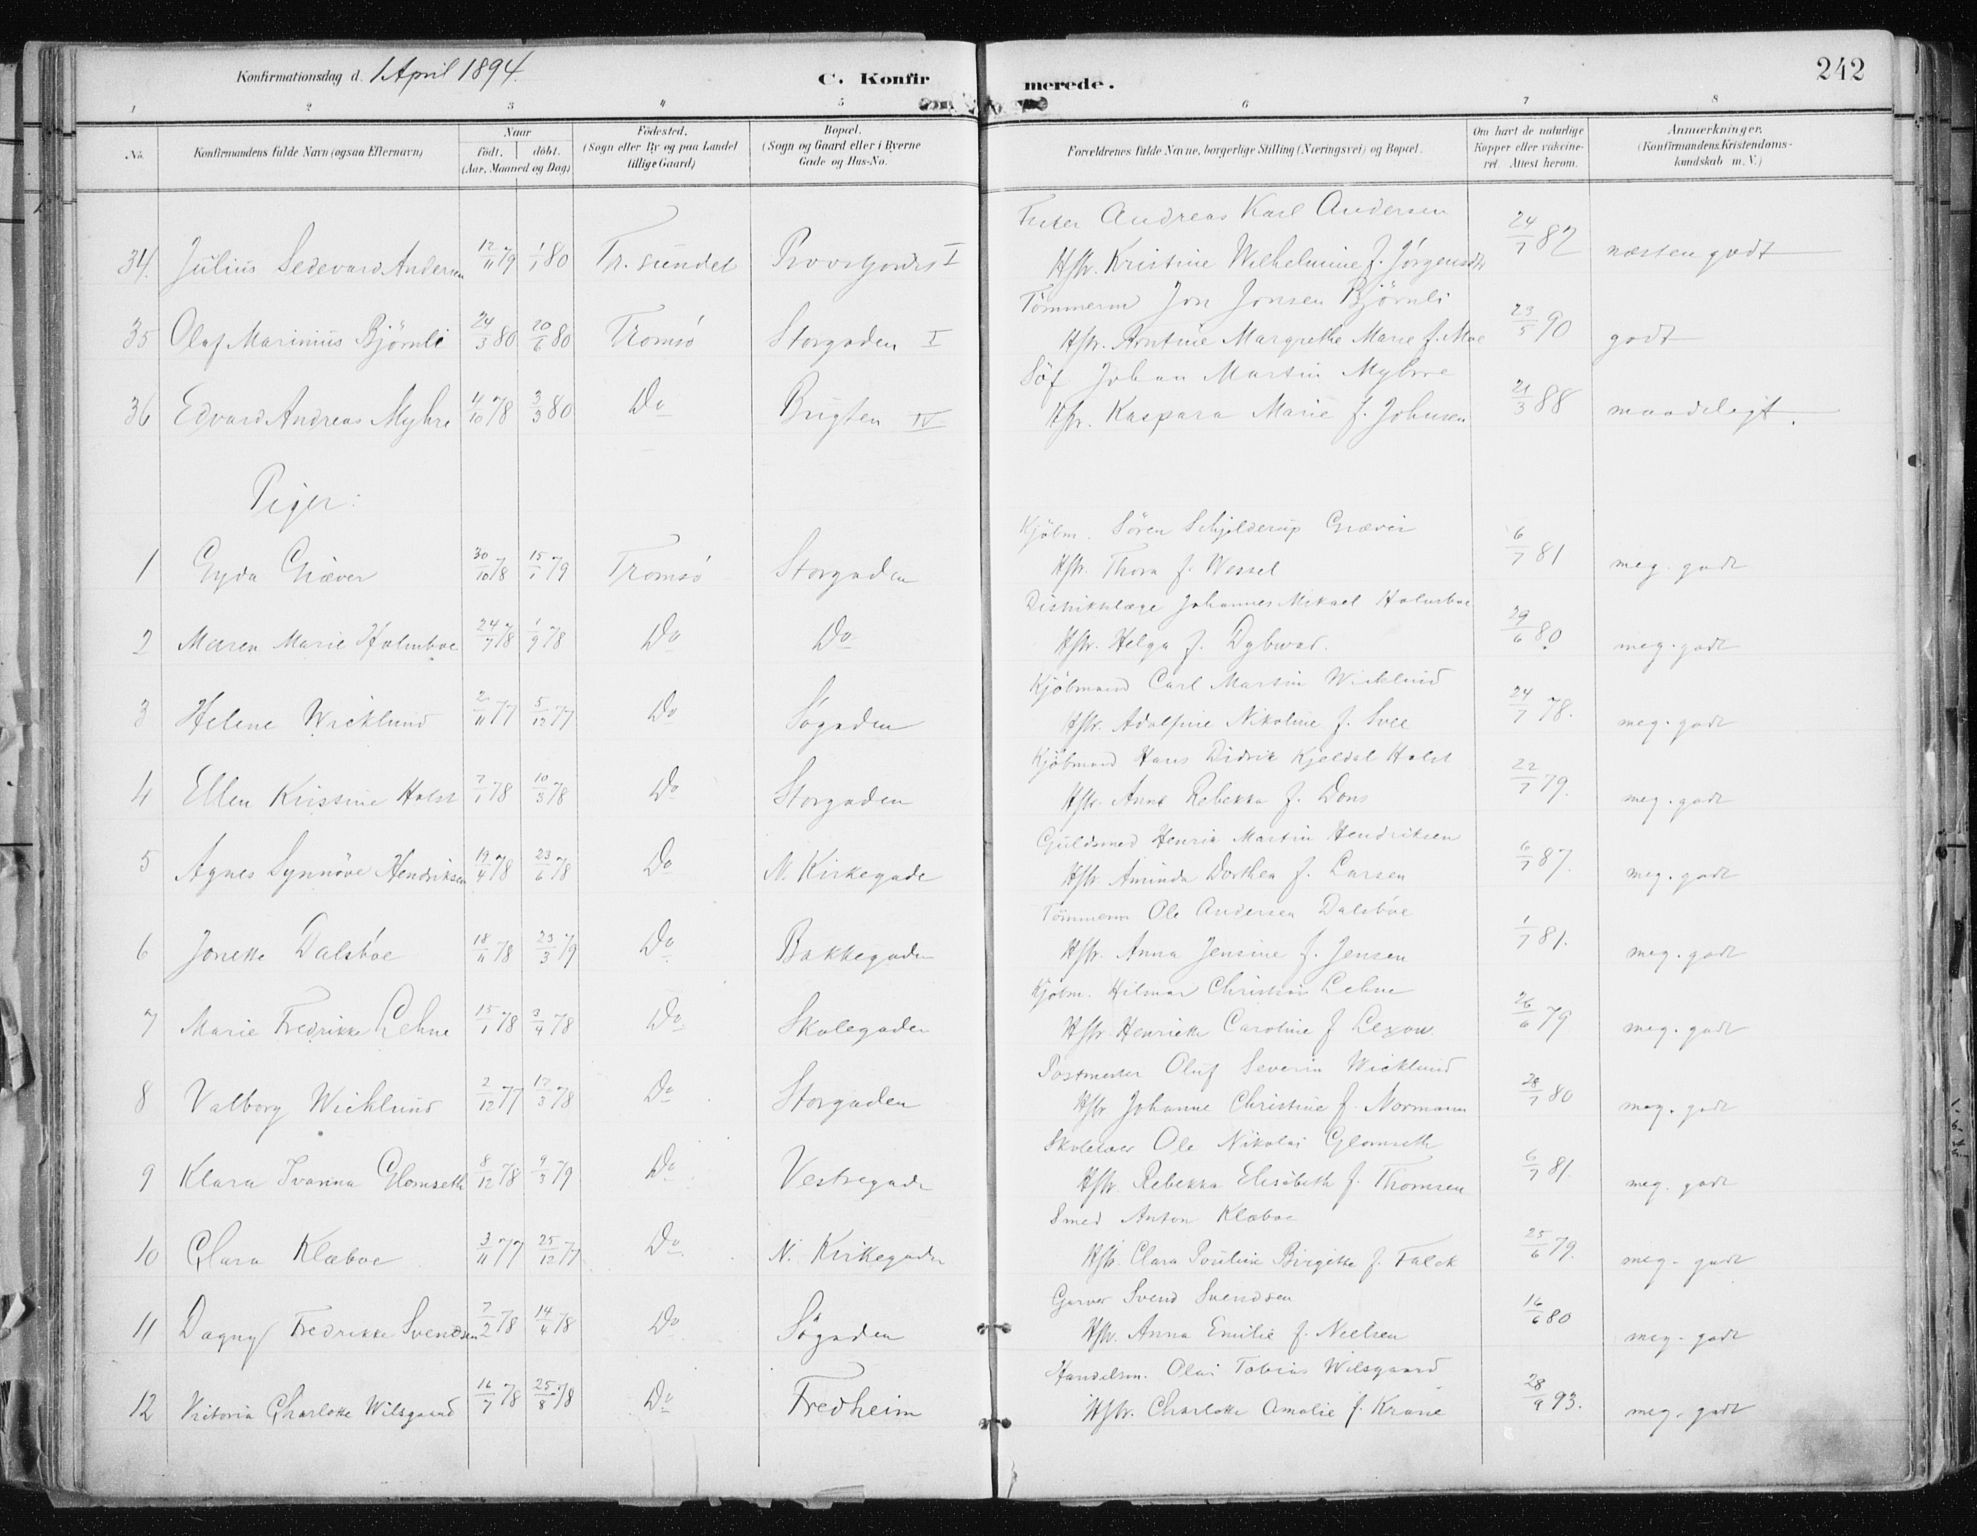 Konfirmationsdag d. 1 April 1894. C. Konfirmerede. 242
1 2 3 4 5 6 7 8
No. Konfirmandens fulde Navn (ogsaa Efternavn) Naar født, døbt. (Aar, Maaned og Dag) Fødested. (Sogn eller By og paa Landet tillige Gaard) Bopæl. (Sogn og Gaard eller i Byerne Gade og Hus-No. Forældrenes fulde Navne, borgerlige Stilling (Næringsvei) og Bopæl. Om havt de naturlige Kopper eller vakcineret. Attest herom. Anmærkninger. (Konfirmandens Kristendomskundskab m. V.)
Andreas Karl Andersen
34. Julius Sedevard Andersen 12/11 79 1/1 80 Tr. sundet I Hstr. Kristine Wilhelmine f. Jørgensdtr 24/7 82 næsten godt
Tömmerm Jon Jonsen Björnli
35 Olaf Marinius Björnli 24/3 80 20/6 80 Tromsö Storgaden I Hstr. Arntine Margrethe Marie f. Moe 23/5 90 godt
Söf Johan Martin Myhre
36 Edvard Andreas Myhre 4/10 78 3/3 80 Do IV Hstr. Kaspara Marie f. Johnsen 21/3 88 maadeligt.
Piger:
Kjöbm. Sören Schjelderup Græver
1 Gyda Græver 30/10 78 15/1 79 Tromsö Storgaden Hstr. Thora f. Wessel 6/7 81 meg. godt
Distriktslæge Johannes Mikael Holmboe
2 Maren Marie Holmboe 24/7 78 1/9 78 Do Do Hstr. Helga f. Dybwad. 29/6 80 meg. godt
Kjöbmand Carl Martin Wicklund
3 Helene Wicklund 2/11 77 5/12 77 Do Søgaden Hstr. Adolfine Nikoline f. 24/7 78. meg. godt
Kjöbmand Hans Didrik Kjeldal Holst
4 Ellen Kristine Holst 7/1 78 10/3 78 Do Storgaden Hstr. Anne Rebekka f. Dons 22/7 79. meg. godt
Guldsmed Henrik Martin Hendriksen
5 Agnes Synnöve Hendriksen 19/4 78 23/6 78 Do N. Kirkegade Hstr. Aminda Dorthea f. Larsen 6/7 87. meg. godt
Tömmerm Ole Andersen Dalsböe
6 Jonette Dalsböe 18/11 78 23/3 79 Do Bakkegaden Hstr. Anna Jensine f. Jensen 1/7 81. meg. godt
Kjöbm. Hilmar Christian Lehne
7 Marie Fredrikke Lehne 15/1 78 3/4 78 Do Skolegaden Hstr. Henriette Caroline f. Lexow. 26/6 79 meg. godt
Postmester Oluf Severin Wicklund
8 Valborg Wicklund 2/12 77 17/3 78 Do Storgaden Hstr Johanne Christine f. Normann 28/7 80 meg. godt
Skolelærer Ole Nikolai Glomseth
9 Klara Ivanna Glomseth 8/12 78 9/3 79 Do Vestregade Hstr. Rebekka Elisabeth f. Thomsen 6/7 81. meg. godt
Smed Anton Klæboe
10 Clara Klæboe 3/11 77 25/12 77 Do N. Kirkegaden Hstr. Clara Pouline Birgitte f. Falck 25/6 79. meg. godt
Garver Svend Svendsen
11 Dagny Fredrikke Svendsen 7/2 78 14/4 78 Do Søgaden Hstr. Anna Emilie f. Nielsen 16/6 80 meg. godt
Handelsm. Olai Tobias Wilsgaard
12 Victoria Charlotte Wilsgaard 16/7 78 25/8 78 Do Fredheim Hstr. Charlotte Amalie f. Krane 28/9 93. meg. godt